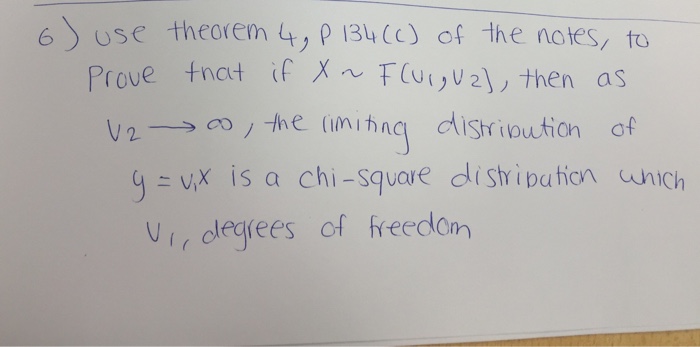 6) use theorem 4, P 134(c) of the notes, to
Prove that if X ~ F(V1, V2), then as
V2 → ∞, the limiting distribution of
y = V1X is a chi-square distribution which
V1, degrees of freedom